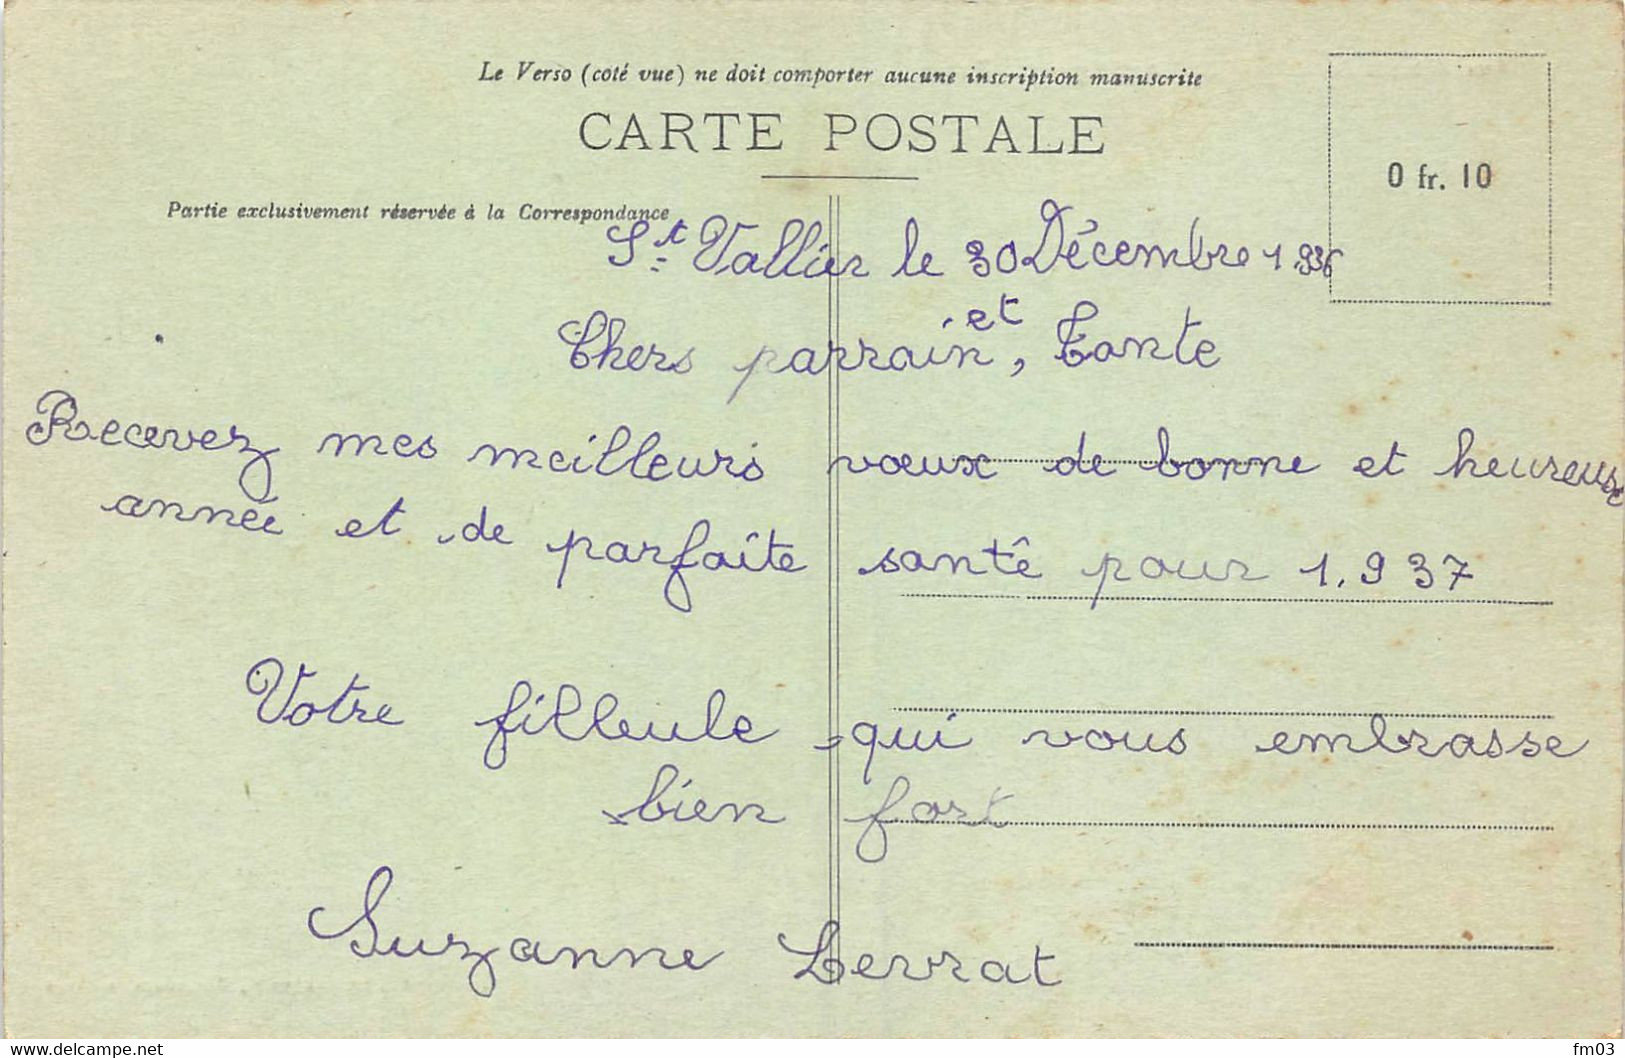 Le Verso (coté vue) ne doit comporter aucune inscription manuscrite
CARTE POSTALE
0 fr. 10
Partie exclusivement réservée à la Correspondance
St Vallier le 30 Décembre 1.936
Chers parrain, et Tante
Recevez mes meilleurs vœux de bonne et heureuse
année et de parfaite santé pour 1.937
Votre filleule qui vous embrasse
bien fort
Suzanne
delcampe.net
fm03